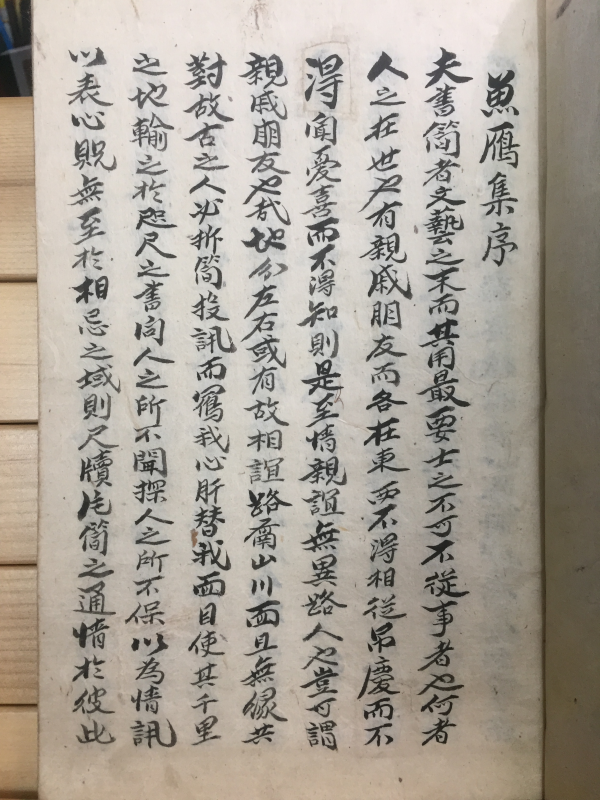 魚鴈集序
夫書簡者文藝之末而其用最要士之不可不從事者也何者
人之在世也有親戚朋友而各在東西不得相從吊慶而不
得聞憂喜而不得知則是至情親誼無異路人也豈可謂
親戚朋友也哉地分左右或有故相誼路南山川而且無緣共
對故古之人必折簡投訊而寫我心肝替我面目使其千里
之地輸之於咫尺之書向人之所不聞探人之所不保以為情訊
以表心貺無至於相忌之域則尺牘片簡之通情於彼此